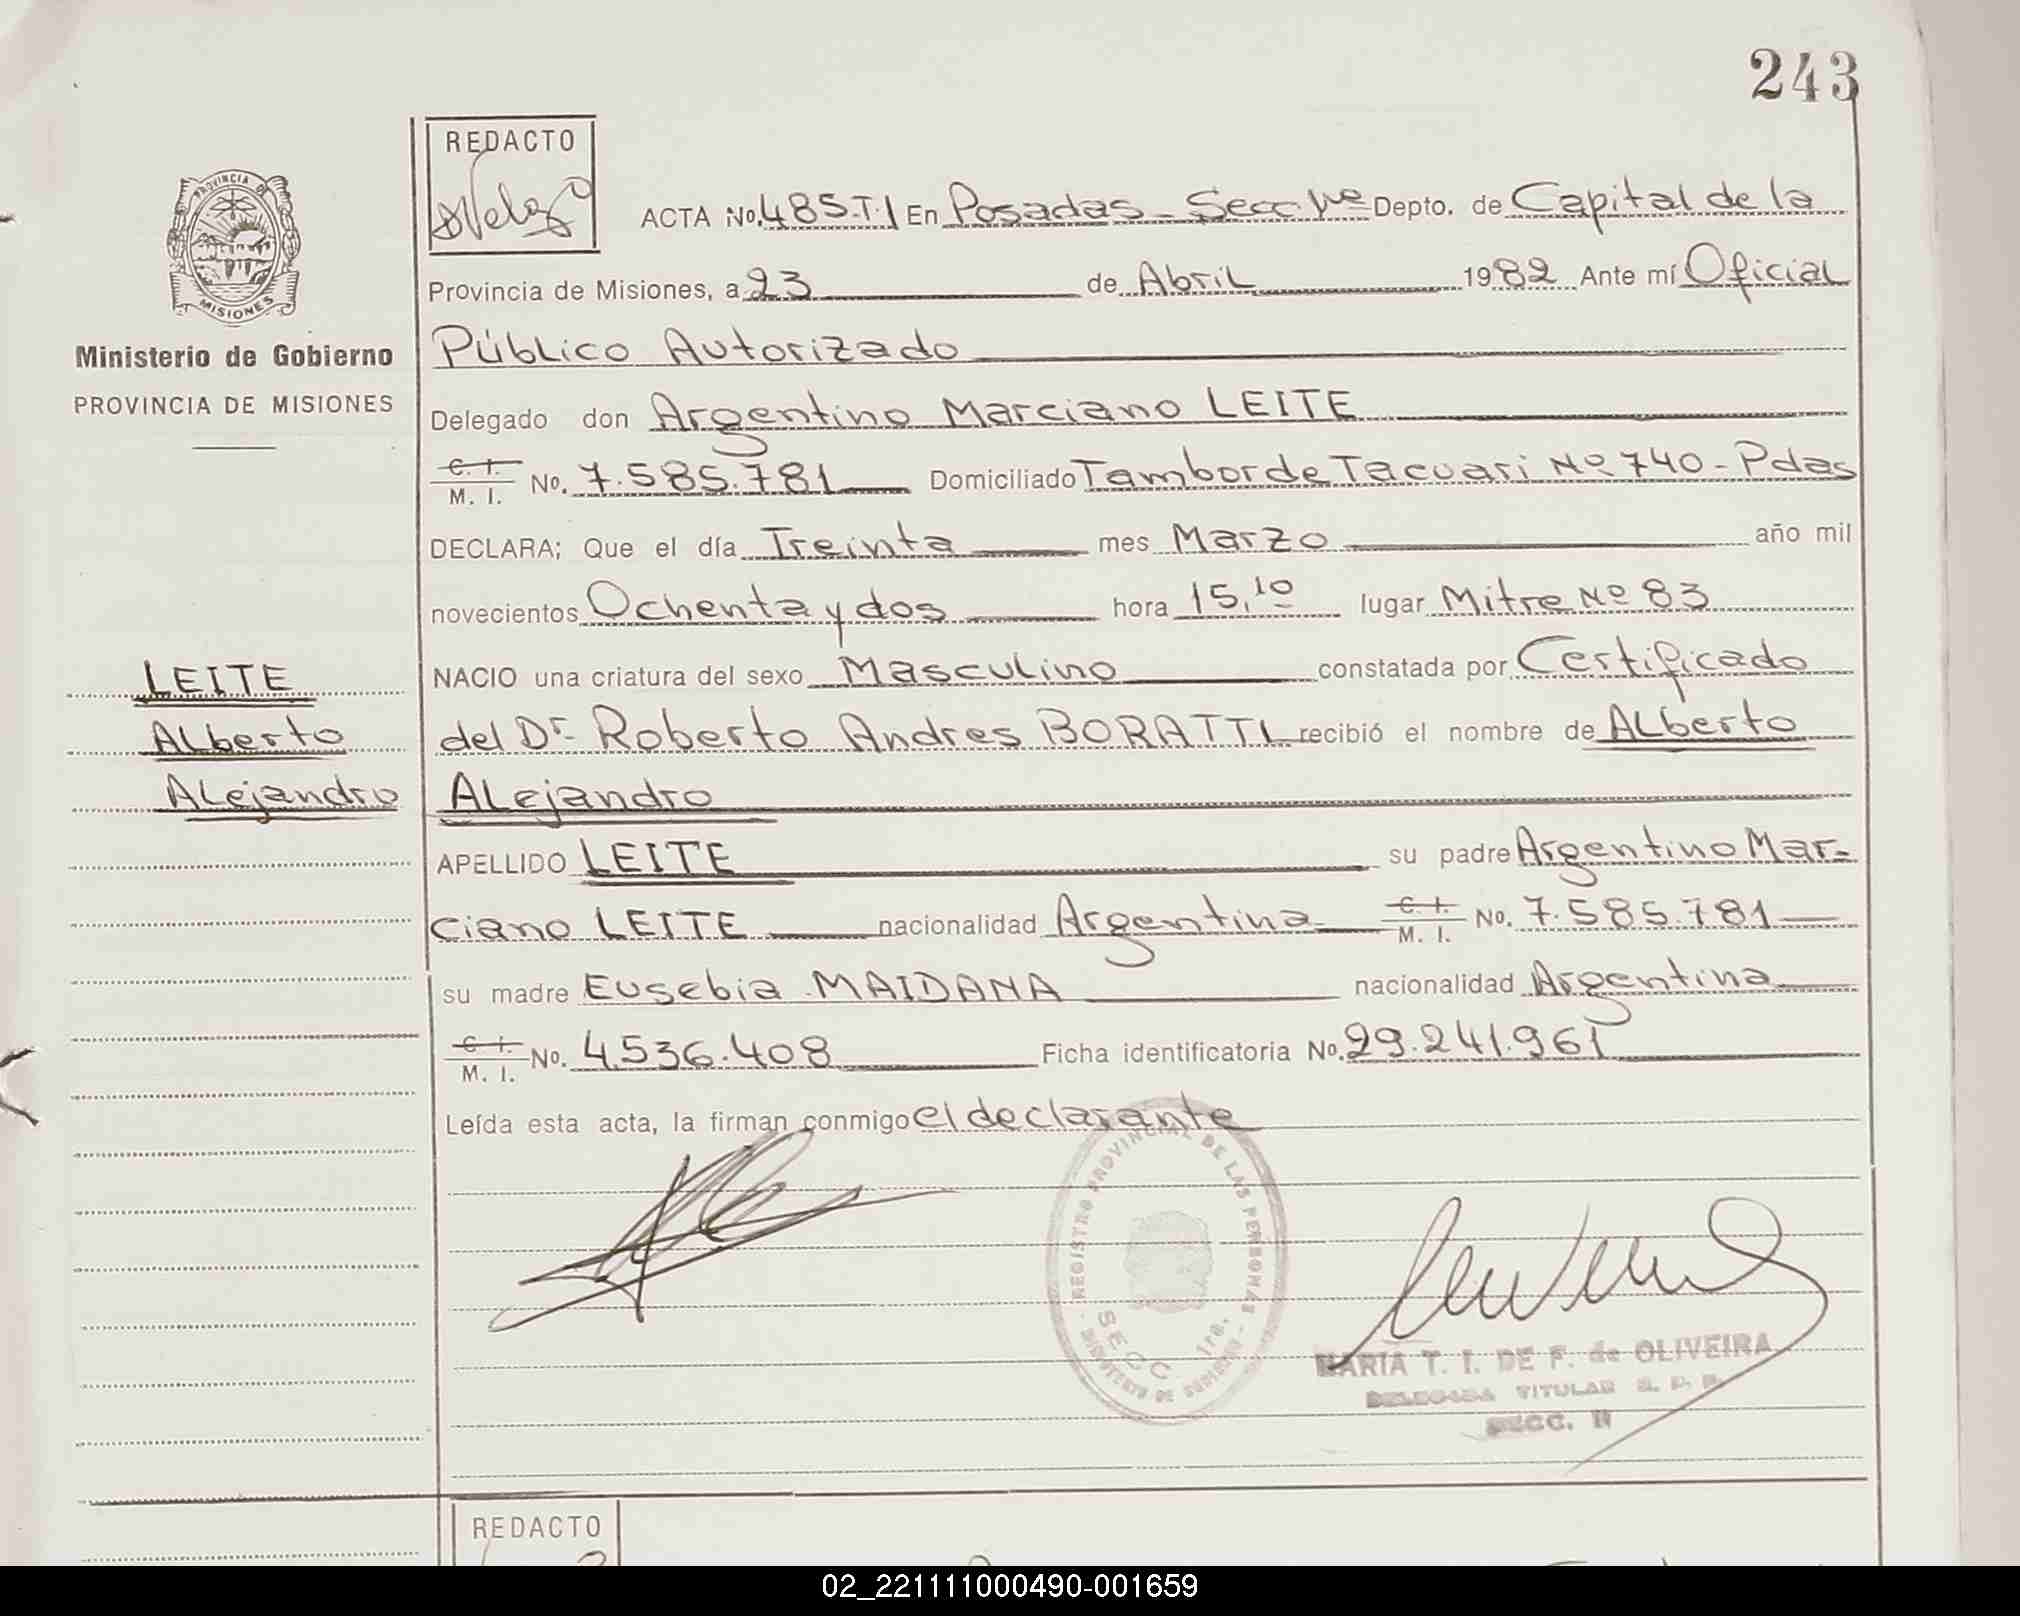 243
REDACTO
ACTA No. 485.T.I En Posadas - Secc 1ra Depto. de Capital de la
PROVINCIA DE
MISIONES
Provincia de Misiones, a 23 de Abril 1982 Ante mí Oficial
Ministerio de Gobierno
Público Autorizado
PROVINCIA DE MISIONES
Delegado don Argentino Marciano LEITE
C. I.
M. I. No. 7.585.781 Domiciliado Tambor de Tacuari Nº 740 - Pdas
DECLARA; Que el día Treinta mes Marzo año mil
novecientos Ochenta y dos hora 15,10 lugar Mitre Nº 83
LEITE
NACIO una criatura del sexo Masculino constatada por Certificado
Alberto
del Dr. Roberto Andres BORATTI recibió el nombre de Alberto
Alejandro
Alejandro
APELLIDO LEITE su padre Argentino Mar-
ciano LEITE nacionalidad Argentina C. I. M. I. No. 7.585.781
su madre Eusebia MAIDANA nacionalidad Argentina
C. I.
M. I. No. 4.536.408 Ficha identificatoria No. 29.241.961
Leída esta acta, la firman conmigo el declarante
REGISTRO PROVINCIAL DE LAS PERSONAS
SECC. 1ra.
MINISTERIO DE GOBIERNO
MARIA T. I. DE F. de OLIVEIRA
DELEGADA TITULAR R. P. P.
SECC.
REDACTO
02_221111000490-001659